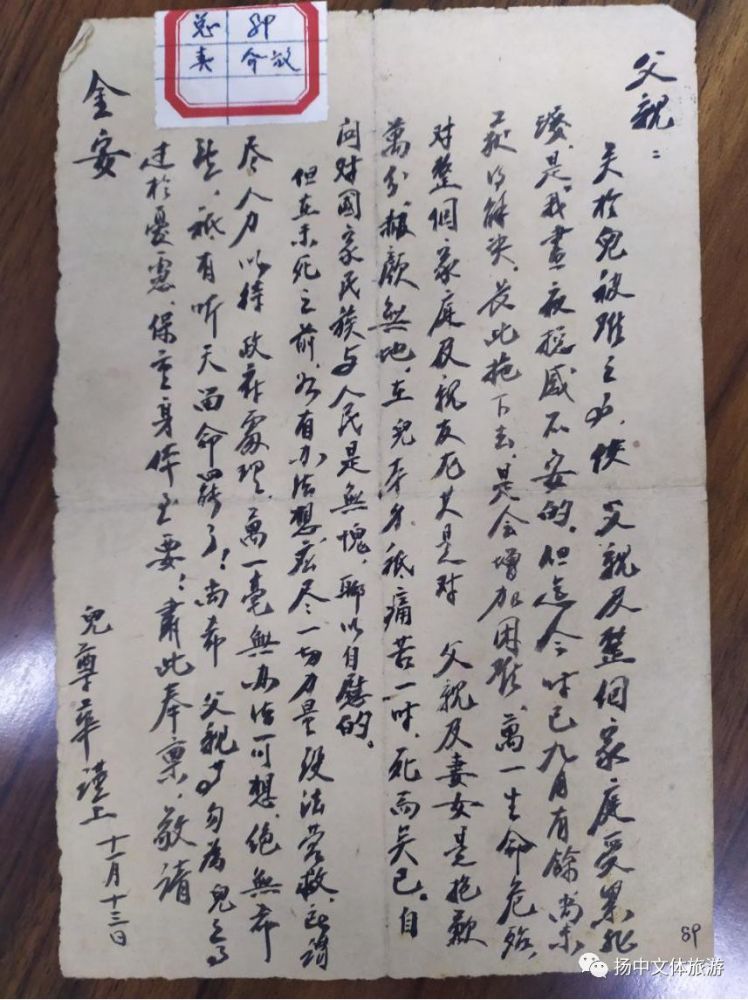 父親：
关於兒被难之事，使 父親及整個家庭受累非
淺，是我晝夜抱感不安的。但迄今时已九月有餘，尚未
获得解决，長此拖下去，是会增加困难，萬一生命危殆，
对整個家庭及親友尤其是对 父親及妻女是抱歉
萬分，赧颜無地。在兒本身，祗痛苦一时，死而矣已。自
问对國家民族与人民是無愧，聊以自慰的。
但在未死之前，如有办法想，应尽一切力量设法营救，所謂
尽人力以待 政府處理，萬一毫無办法可想，绝無希
望，祗有听天由命罢了！尚希 父親等勿為兒之事
过於憂慮，保重身体至要！肃此奉禀，敬请
金安
兒尊華谨上 十一月十三日
扬中文体旅游